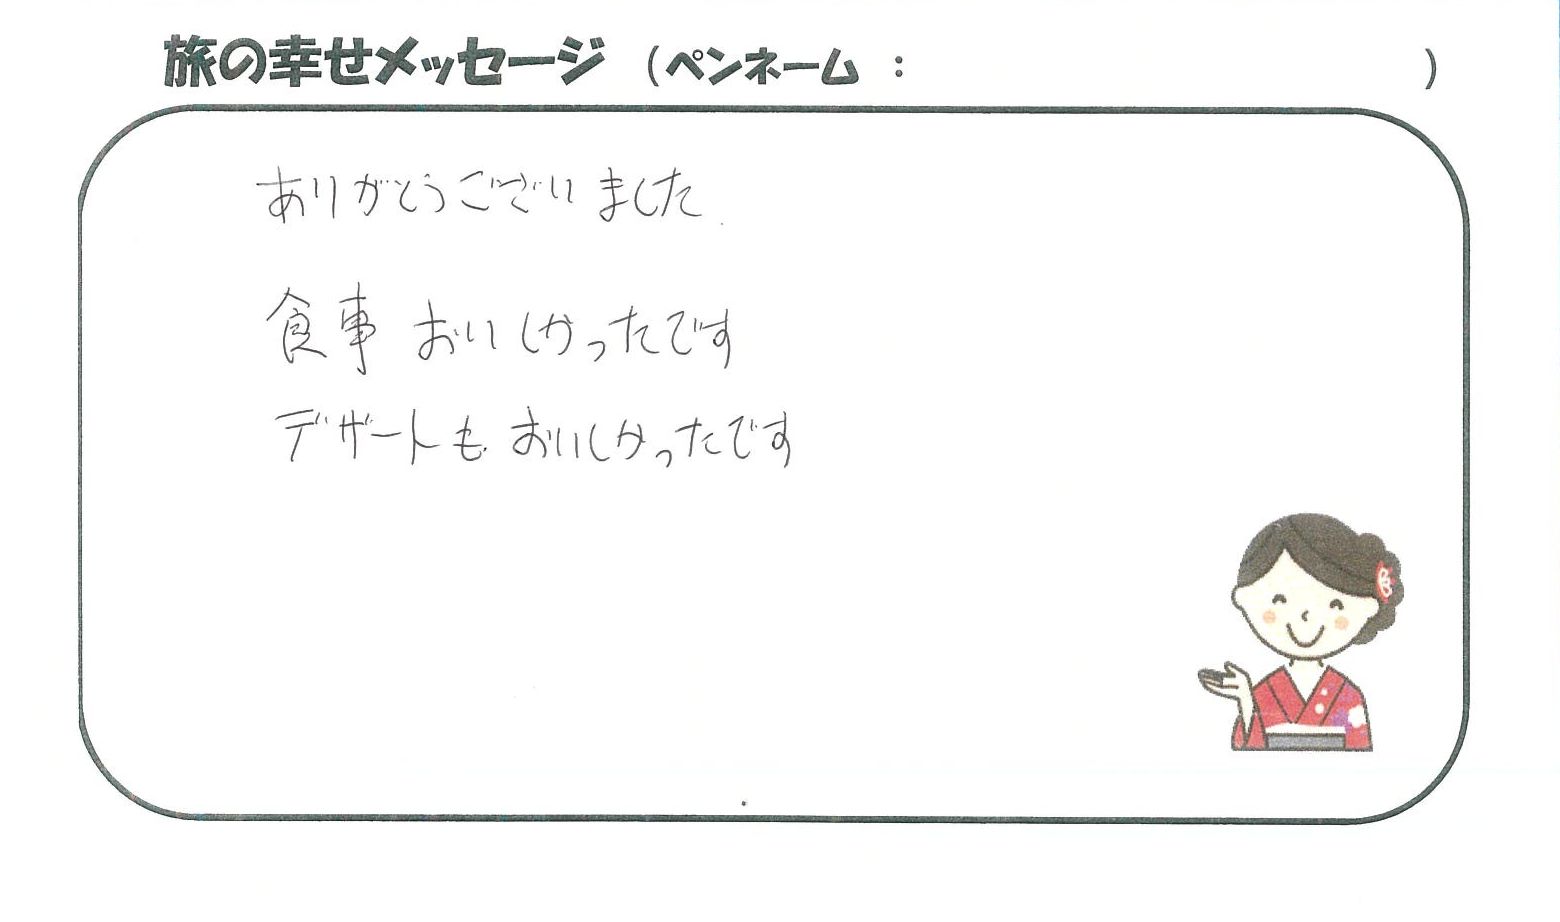 旅の幸せメッセージ （ペンネーム ： ）
ありがとうございました
食事 おいしかったです
デザートも おいしかったです